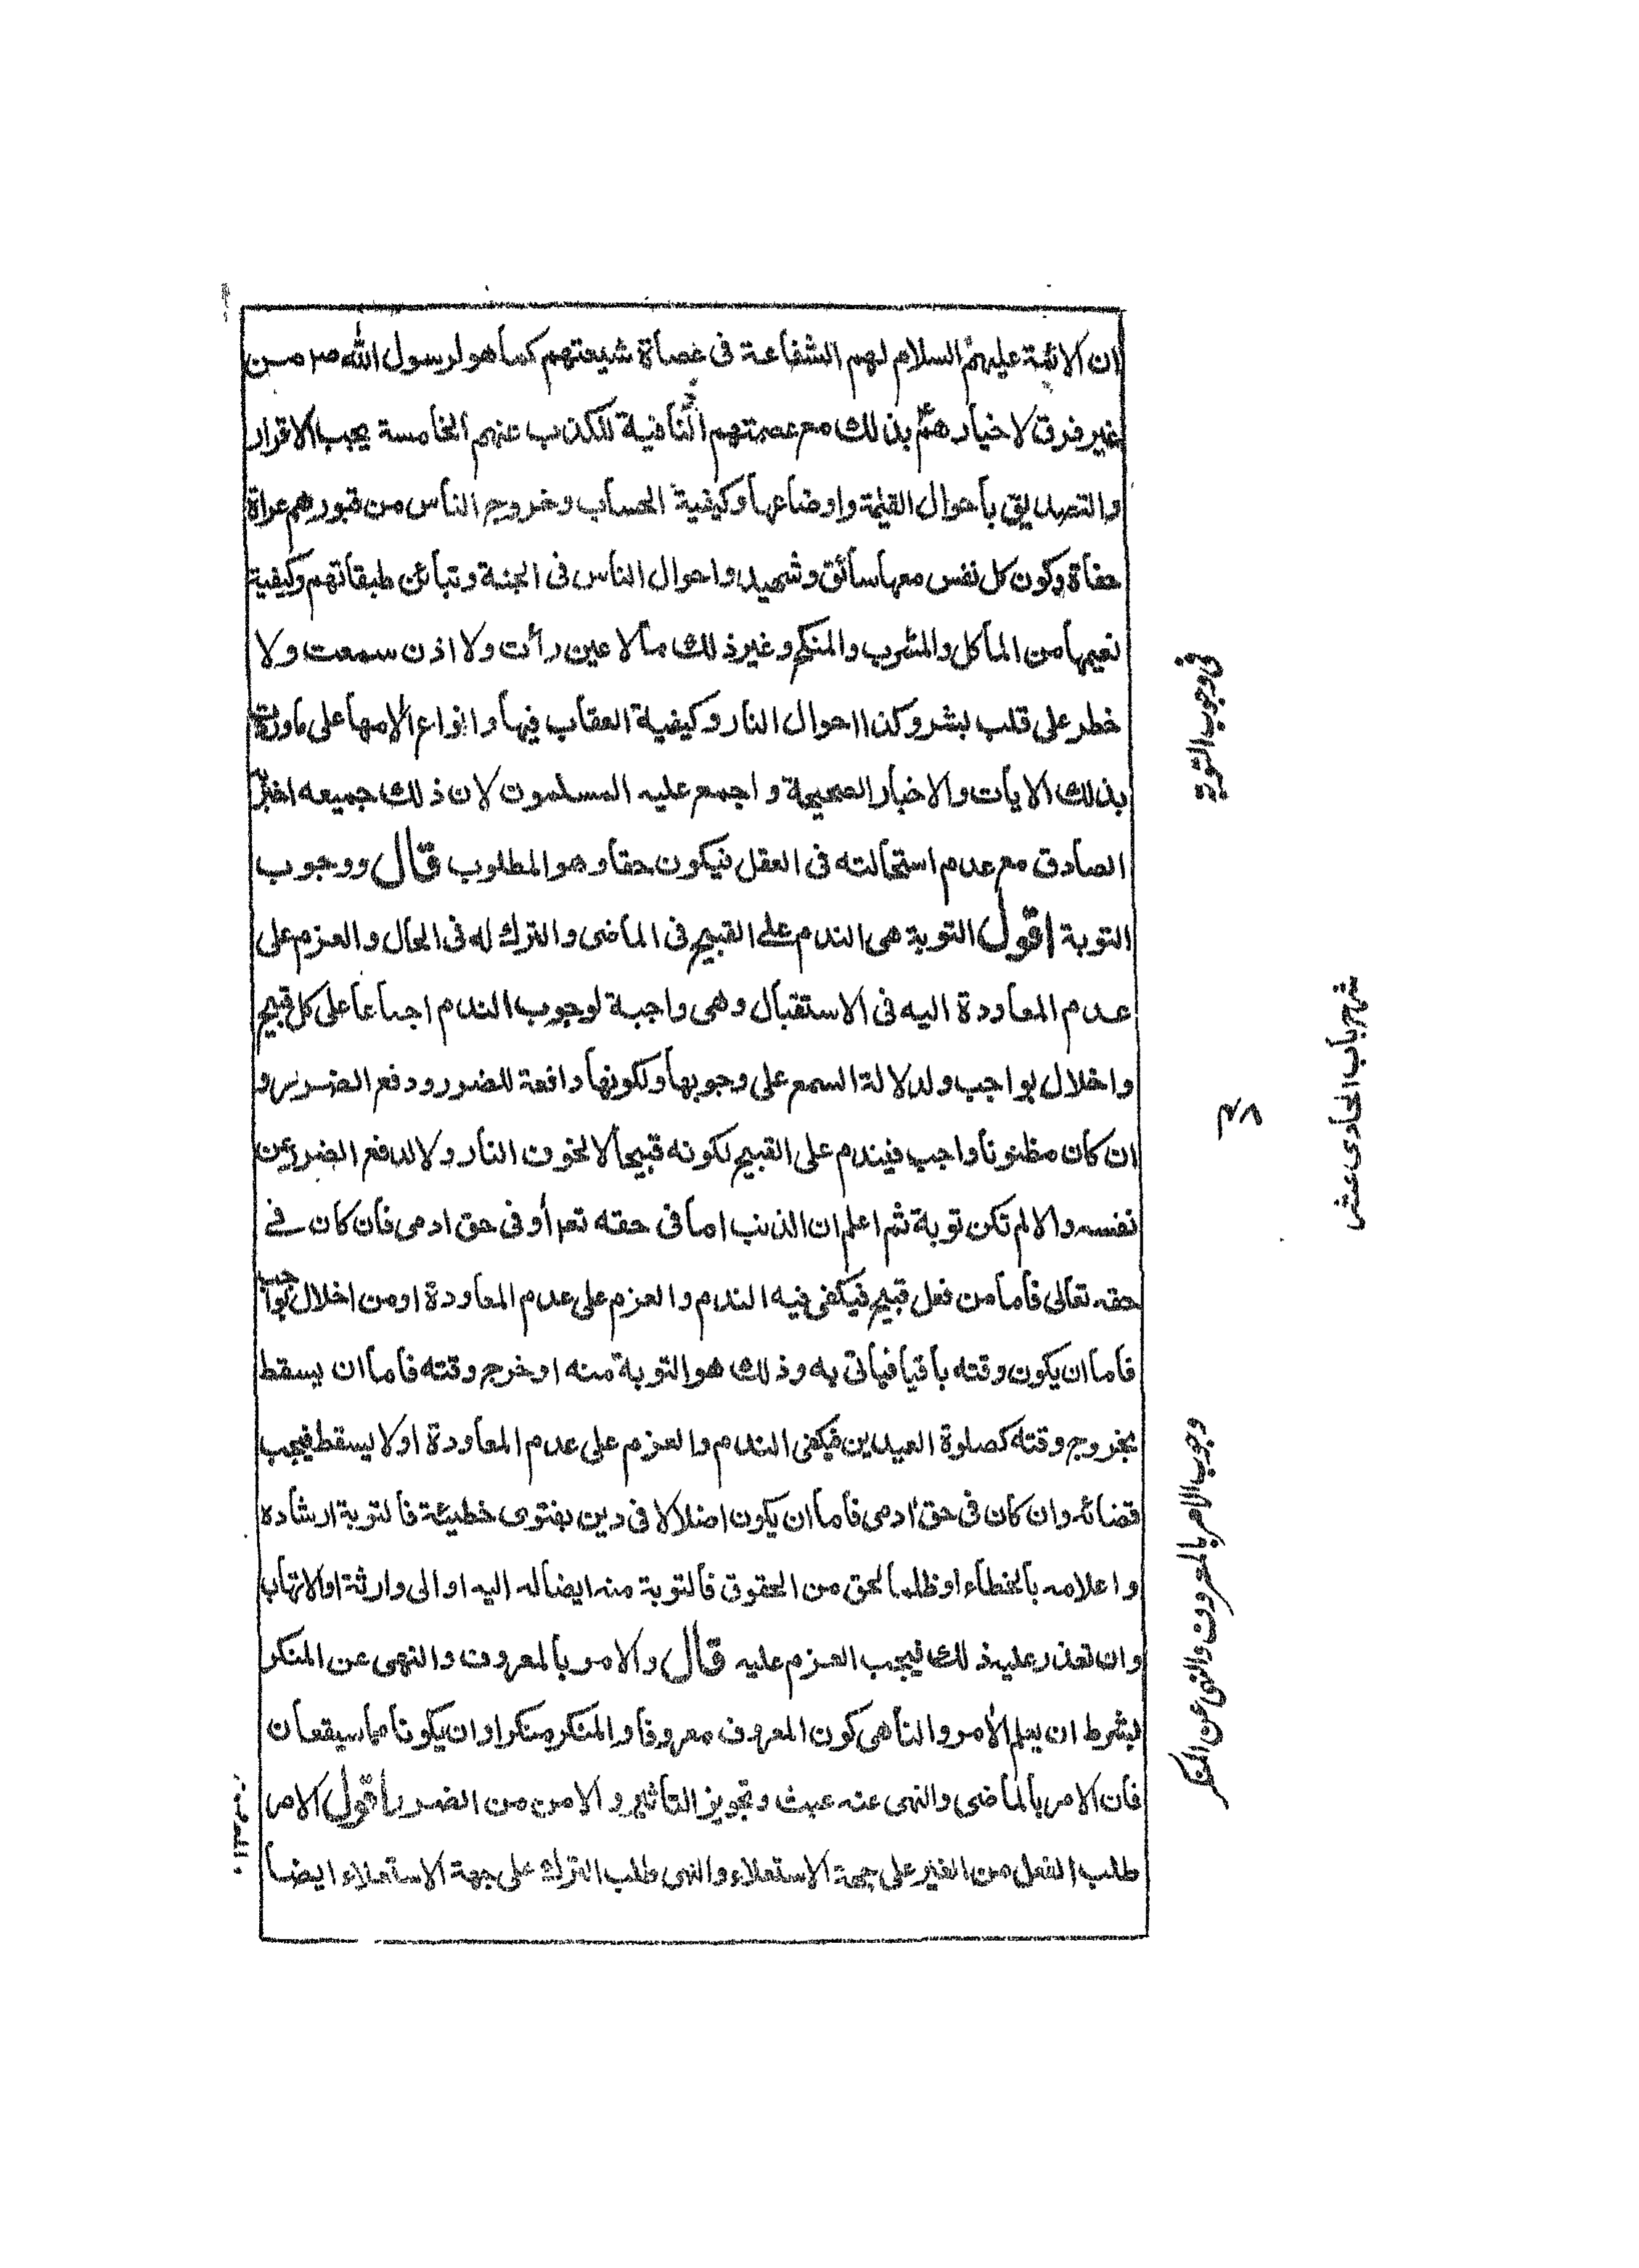 ان الائمة عليهم السلام لهم الشفاعة فى عصاة شيعتهم كما هو لرسول الله ص من
غير فرق لاخبارهم بذلك مع عصمتهم النافية للكذب عنهم الخامسة يجب الاقرار
والتصديق باحوال القيمة واوضاعها وكيفية الحساب وخروج الناس من قبورهم عراة
حفاة وكون كل نفس معها سائق وشهيد واحوال الناس فى الجنة وتبائن طبقاتهم وكيفية
نعيمها من المأكل والمشرب والمنكح وغير ذلك مالا عين رأت ولا اذن سمعت ولا
خطر على قلب بشر وكذا احوال النار وكيفية العقاب فيها وانواع الامها على ماوردت
بذلك الايات والاخبار الصحيحة واجمع عليه المسلمون لان ذلك جميعه اخبر
الصادق مع عدم استحالته فى العقل فيكون حقا وهو المطلوب قال ووجوب
التوبة اقول التوبة هى الندم على القبيح فى الماضى والترك له فى الحال والعزم على
عدم المعاودة اليه فى الاستقبال وهى واجبة لوجوب الندم اجماعا على كل قبيح
واخلال بواجب ولدلالة السمع على وجوبها ولكونها دافعة للضرر ودفع الضرر و
ان كان مظنونا واجب فيندم على القبيح لكونه قبيحا لا لخوف النار ولا لدفع الضرر عن
نفسه والا لم تكن توبة ثم اعلم ان الذنب اما فى حقه تعم او فى حق ادمى فان كان فى
حقه تعالى فاما من فعل قبيح فيكفى فيه الندم والعزم على عدم المعاودة او من اخلال بواجب
فاما ان يكون وقته باقيا فياتى به وذلك هو التوبة منه او خرج وقته فاما ان يسقط
بخروج وقته كصلوة العيدين فيكفى الندم والعزم على عدم المعاودة اولا يسقط فيجب
قضائه وان كان فى حق ادمى فاما ان يكون اضلالا فى دين بفتوى خطيئة فالتوبة ارشاده
واعلامه بالخطاء او ظلما لحق من الحقوق فالتوبة منه ايصاله اليه او الى وارثة او الاتهاب
وان تعذر عليه ذلك فيجب العزم عليه قال والامر بالمعروف والنهى عن المنكر
بشرط ان يعلم الامر والناهى كون المعروف معروفا والمنكر منكرا وان يكونا مما سيقعان
فان الامر بالماضى والنهى عنه عبث وتجويز التاثير والامن من الضرر اقول الامر
طلب الفعل من الغير على جهة الاستعلاء والنهى طلب الترك على جهة الاستعلاء ايضا
فى وجوب التوبة
وجوب الامر بالمعروف والنهى عن المنكر
٤٨
شرح باب الحادى عشر